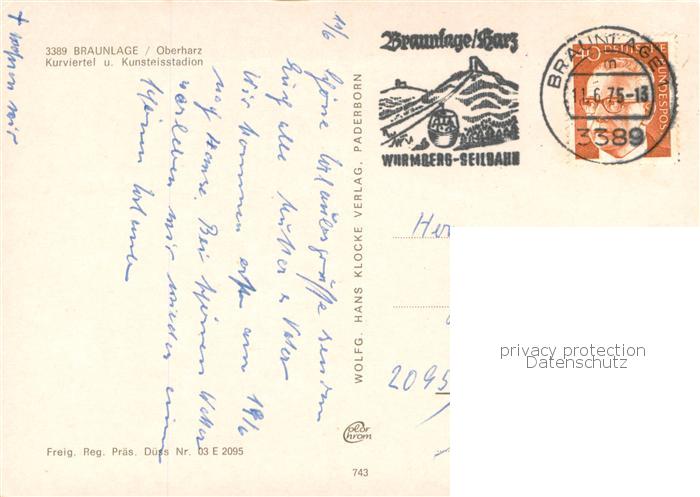 3389 BRAUNLAGE / Oberharz
Kurviertel u. Kunsteisstadion
+ wohnen wir
11/6
Schöne Urlaubsgrüße senden
Euch alle Mutter u Vater
Wir kommen erst am 19/6
nach Hause. Bei schönem Wetter
verleben wir wieder einen
schönen Urlaub
Freig. Reg. Präs. Düss Nr. 03 E 2095
WOLFG. HANS KLOCKE VERLAG, PADERBORN
Color
chrom
743
Braunlage/Harz
WURMBERG-SEILBAHN
BRAUNLAGE
m
11.6.75-13
3389
40 DEUTSCHE BUNDESPOST
2095
privacy protection
Datenschutz